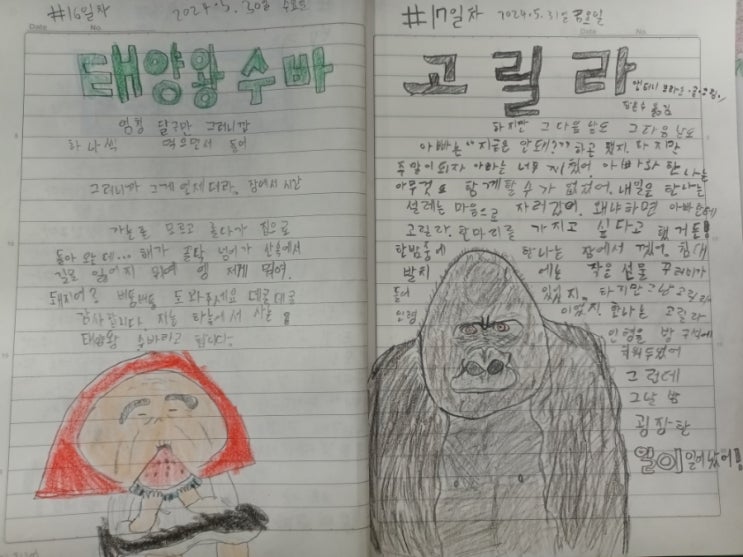 #16일차 2024.5.30일
Date No.
태양왕 수바
엄청 달구만 그러니깐
하나씩 먹으면서 들어
그러니까 그게 언제더라. 잠에서 시간
가는줄 모르고 놀다가 집으로
돌아 와는데... 해가 꼴딱 넘어가 산속에서
길로 잃어지 뭐여
돼지어로 버둥버둥 도와주세요 데굴데굴
감사합니다. 저는 하늘에서 사는
태양왕 수바라고 합니다.
#17일차 2024.5.31일 금요일
Date No.
고릴라
앤터니 브라운 글·그림
장은수 옮김
하지만 그 다음 날도 그 다음 날도
아빠는 "지금은 안돼!" 하곤 했지. 하지만
주말이 되자 아빠는 너무 지쳤어. 아빠와 한나는
아무것도 함께할 수가 없었어. 내일을 한나는
설레는 마음으로 자러갔어. 왜냐하면 아빠한테
고릴라 한마리를 가지고 싶다고 했거든!
한밤중에 한나는 잠에서 깼어. 침대
발치 에는 작은 선물 꾸러미가
놓여 있었지. 하지만 그냥 고릴라
인형 이었지. 한나는 고릴라
인형을 방 구석에
치워두었어
그런데
그날 밤
굉장한
일이 일어났어!